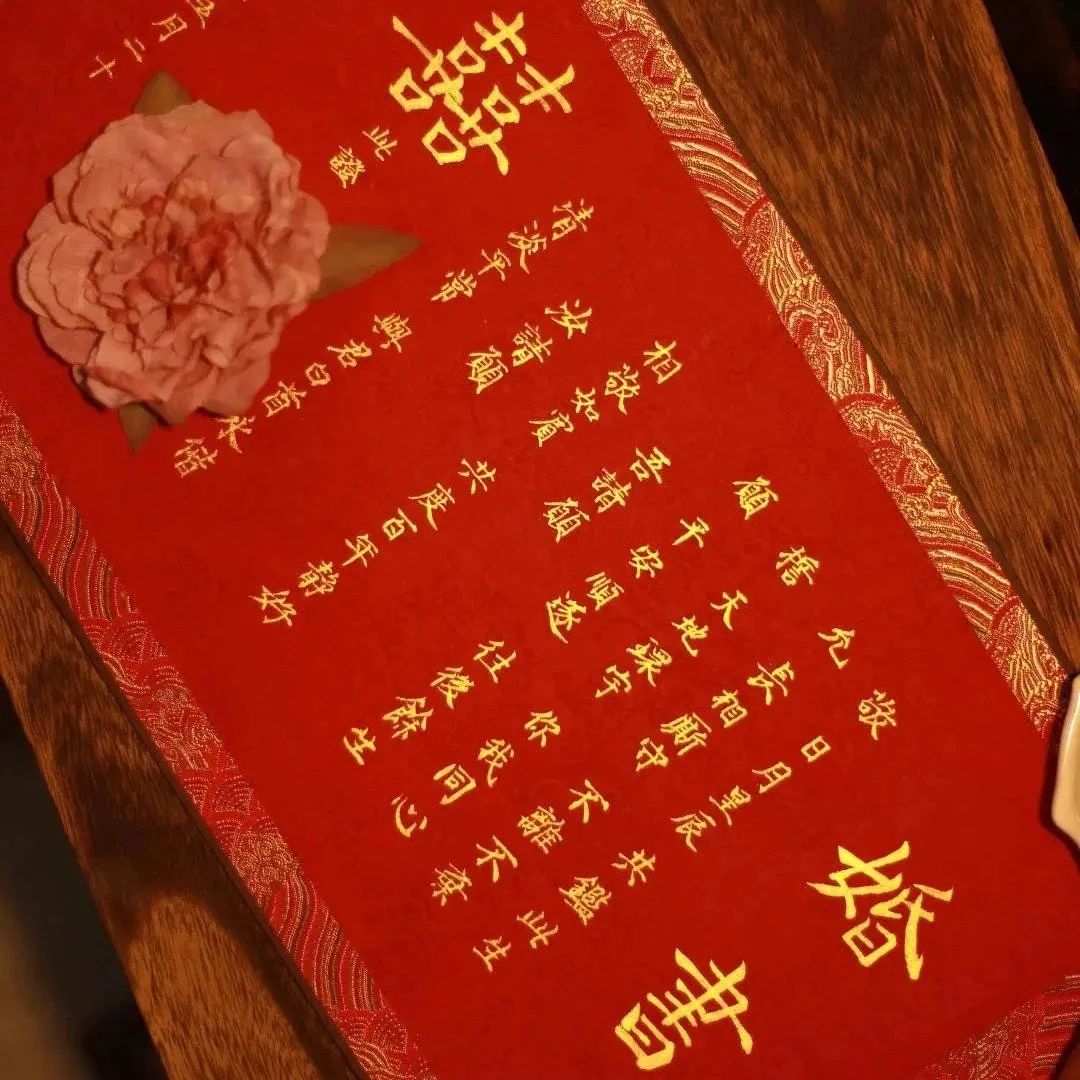 婚書
敬 日月星辰 共鑑此生
允 長相厮守 不離不棄
天地 宇 你我同心
願 平安順遂 往後餘生
吾請願
相敬如賓 共度百年静好
汝請願
清淡平常 與君白首永偕
此證
月二十
囍